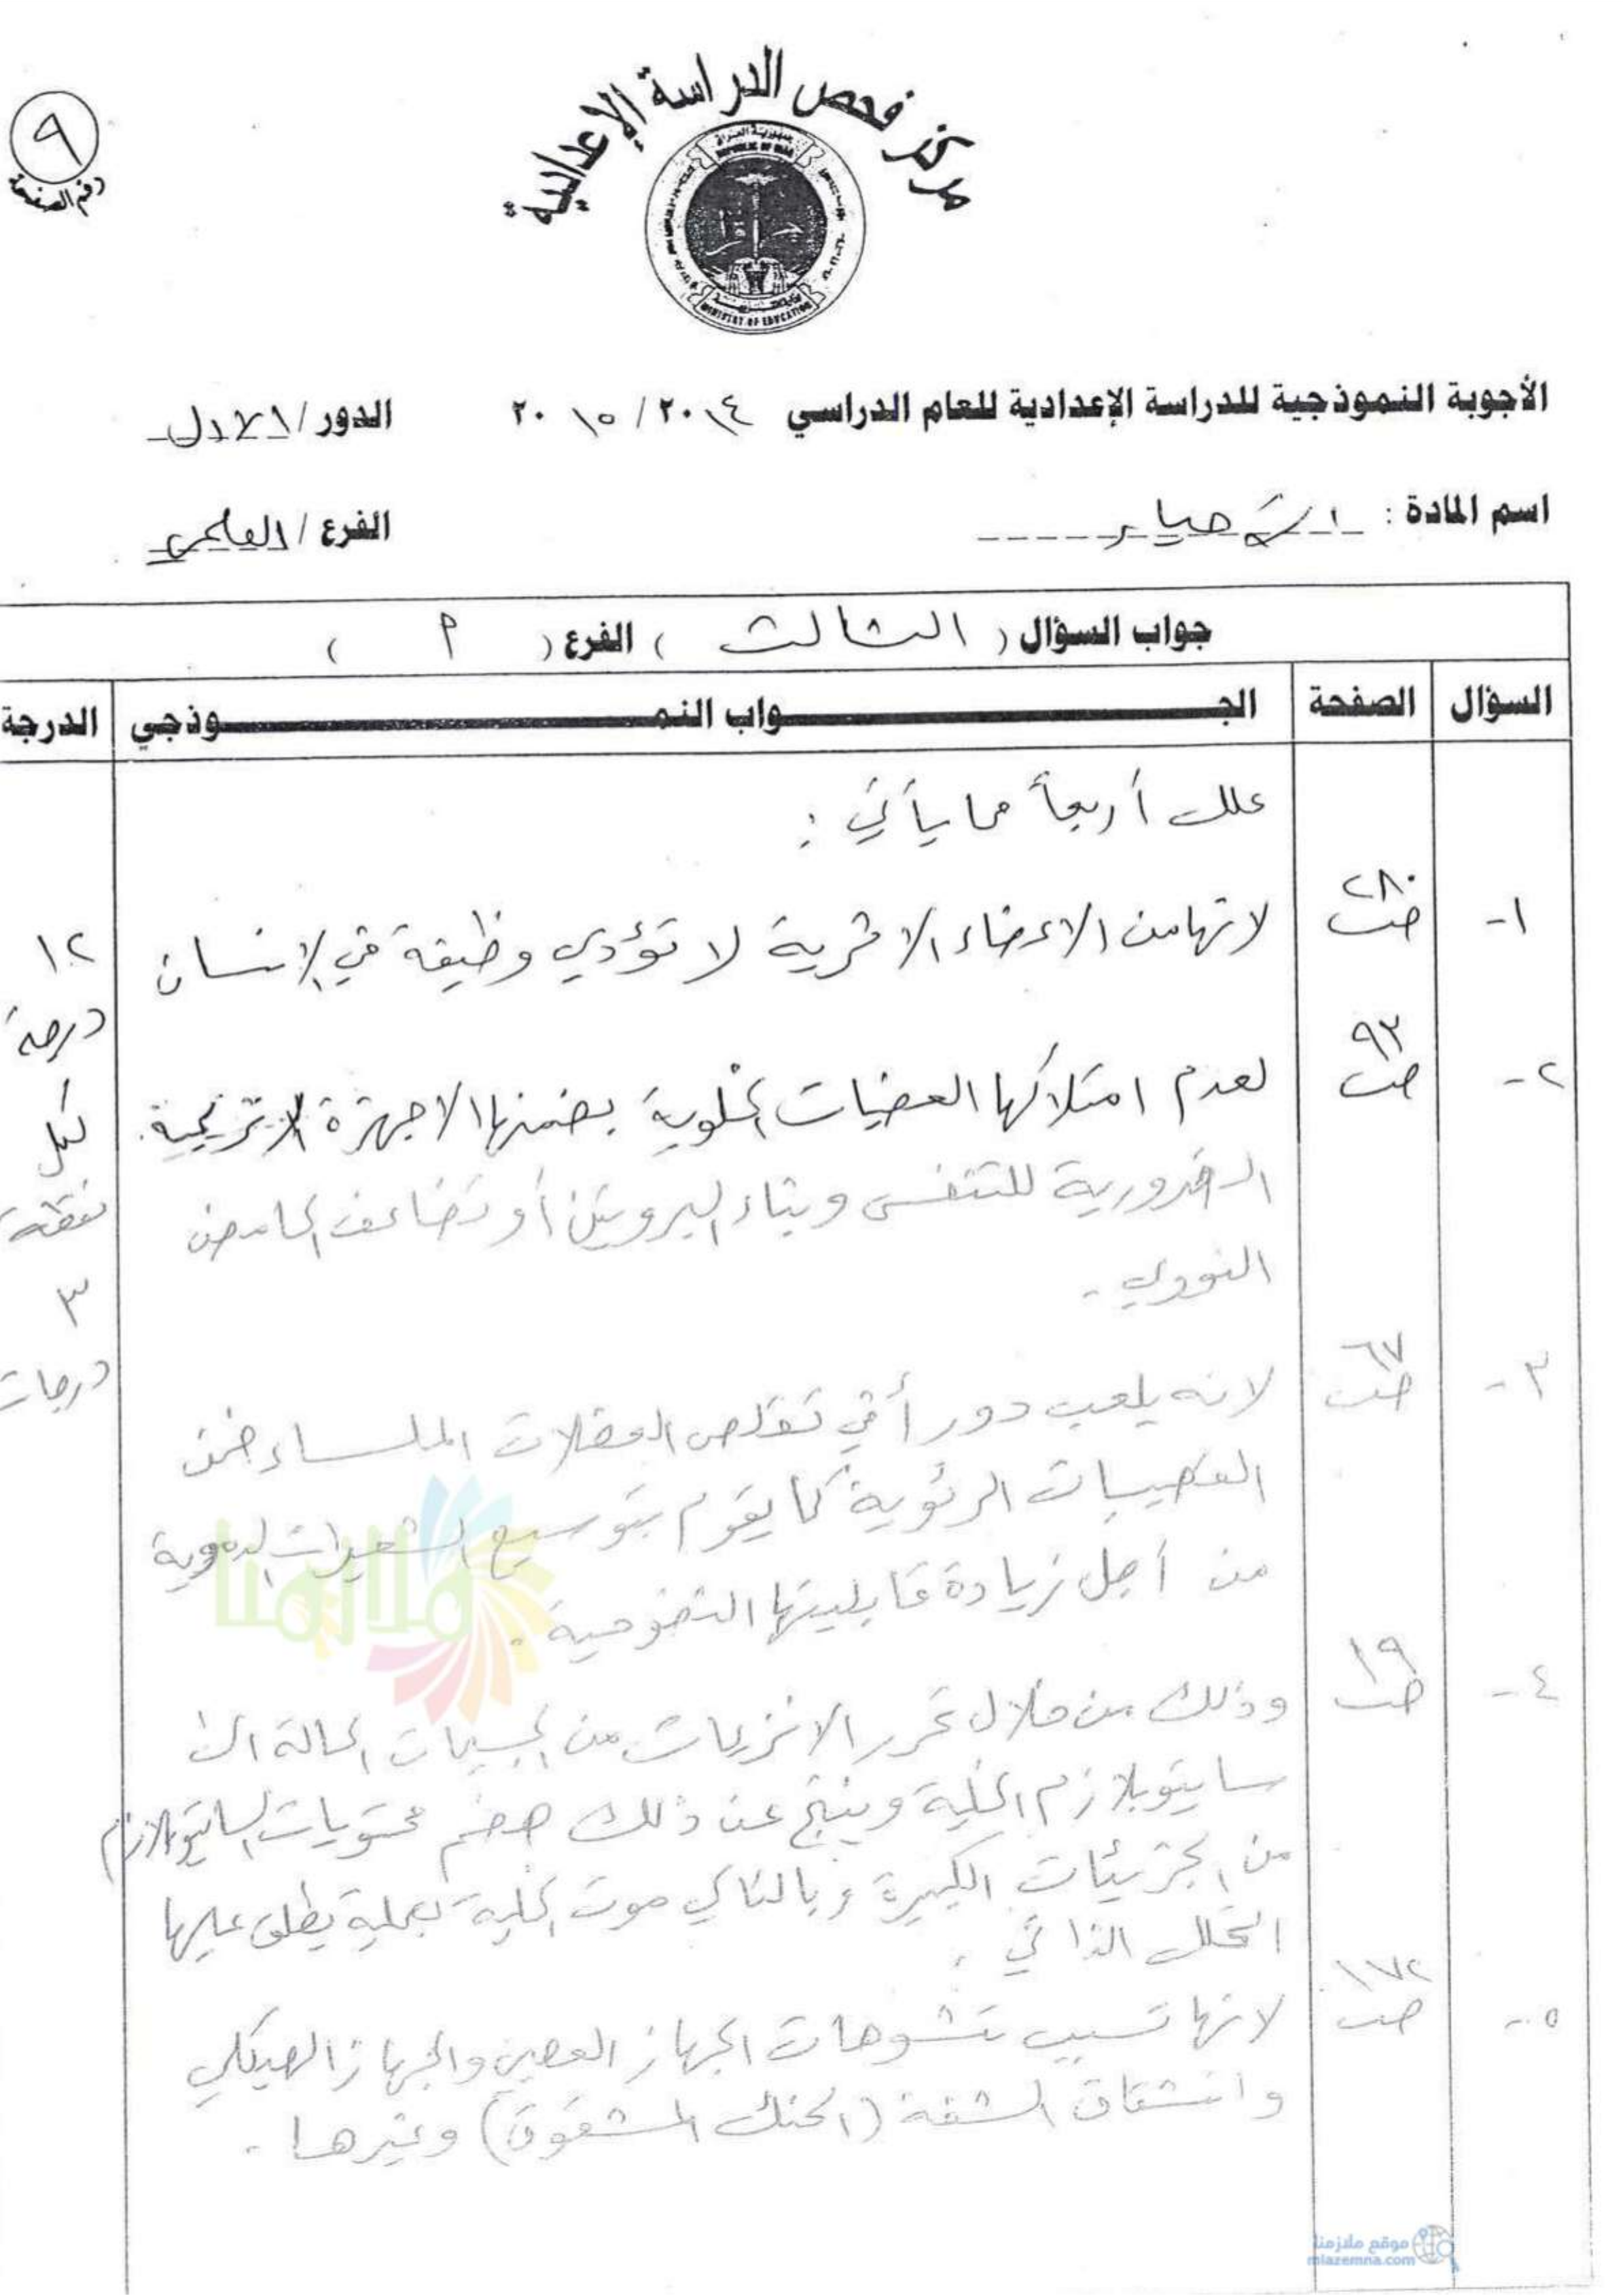 مركز فحص الدراسة الإعدادية
جمهورية العراق
REPUBLIC OF IRAQ
MINISTRY OF EDUCATION
٩
رقم الصفحة
الأجوبة النموذجية للدراسة الإعدادية للعام الدراسي ٢٠١٤ / ٢٠١٥ الدور / الاول
اسم المادة : الاحياء الفرع / العلمي
جواب السؤال ( الثالث ) الفرع ( م )
السؤال الصفحة الجـواب النمـوذجي الدرجة
علل أربعاً مما يأتي :
١- ص٢٨٠ لانها من الاعضاء الاثرية لا تؤدي وظيفة في الانسان ١٢
درجة
٢- ص٩٣ لعدم امتلاكها العضيات الخلوية بضمنها الاجهزة الانزيمية لكل
الضرورية للتنفس وبناء البروتين أو تضاعف الحامض نقطة
النووي . ٣
٣- ص٦٧ لانه يلعب دوراً في تقلص العضلات الملساء ضمن درجات
القصيبات الرئوية كما يقوم بتوسيع الشعيرات الدموية
من أجل زيادة قابليتها النضوحية .
٤- ص١٩ وذلك من خلال تحرر الانزيمات من الجسيمات الحالة الى
سايتوبلازم الخلية وينتج عن ذلك هضم محتويات السايتوبلازم
من الجزيئات الكبيرة وبالتالي موت الخلية بعملية يطلق عليها
التحلل الذاتي .
٥- ص١٧٢ لانها تسبب تشوهات الجهاز العصبي والجهاز الهيكلي
وانشقاق الشفة (الحنك المشقوق) وغيرها .
ملازمنا
موقع ملازمنا
mlazemna.com